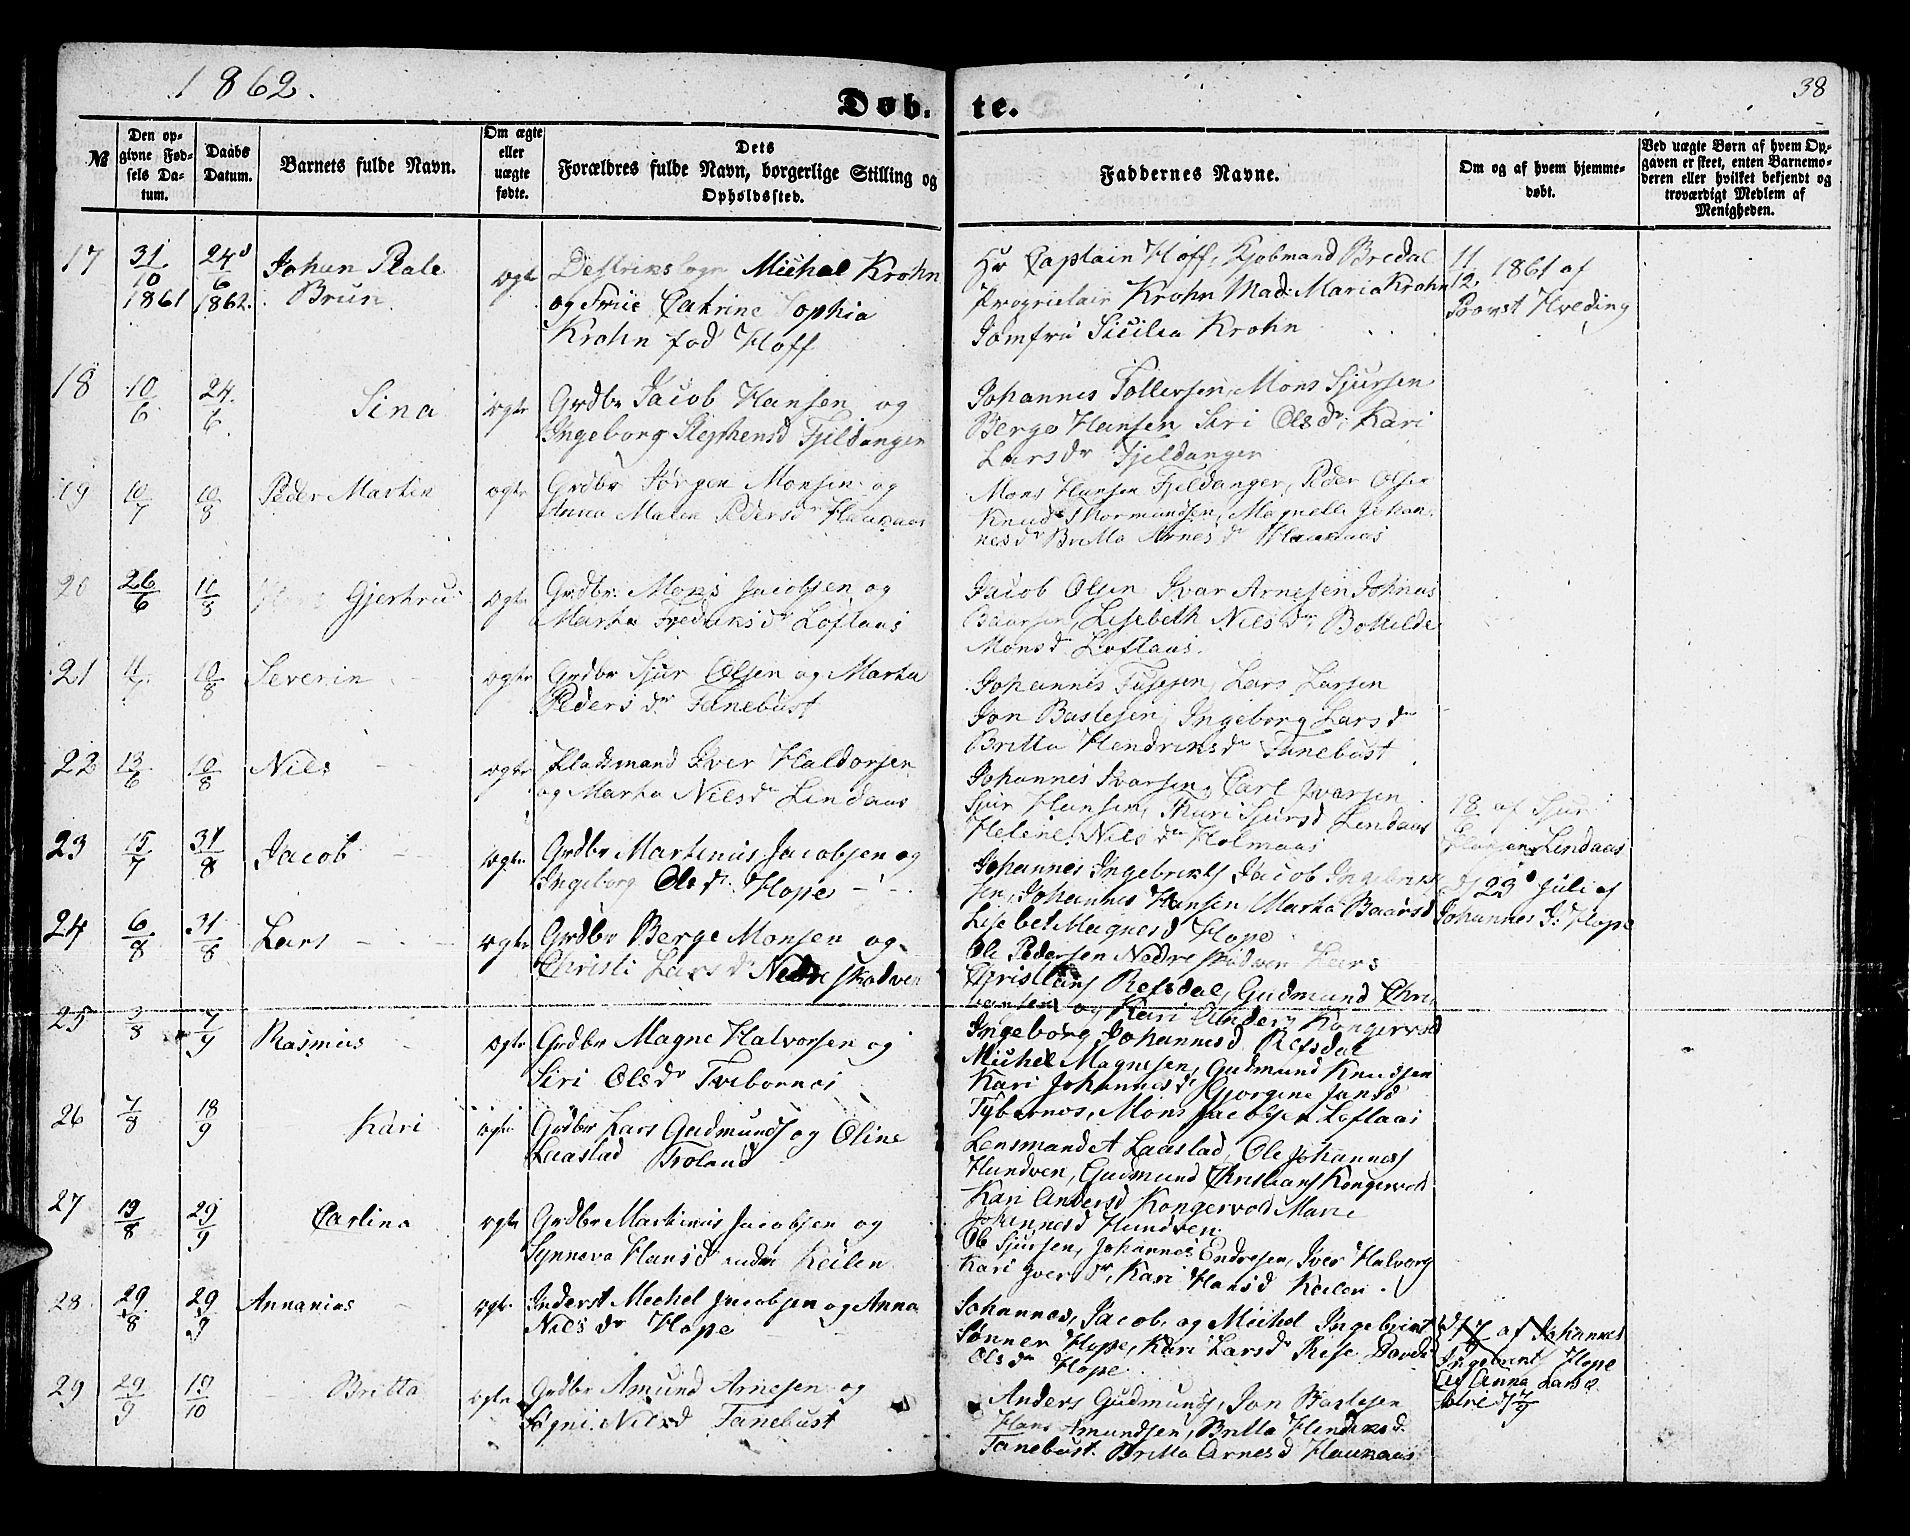 1862.
Døb-
te.
38
№
Den op-
givne Fød-
sels Da-
tum.
Daabs
Datum.
Barnets fulde Navn.
Om ægte
eller
uægte
fødte.
Dets
Forældres fulde Navn, borgerlige Stilling og
Opholdssted.
Faddernes Navne.
Om og af hvem hjemme-
døbt.
Ved uægte Børn af hvem Op-
gaven er skeet, enten Barnemo-
deren eller hvilket bekjendt og
troværdigt Medlem af
Menigheden.
17
31/10 1861
24/6 1862.
Johan
Brun
ægte
Michal Krohn
og Frue Catrine Sophia
Krohn fød Hoff
Hr Captain Hoff, Kjøbmand Bredal
Proprietair Krohn Mad. Maria Krohn
Jomfru Sicilia Krohn
11/12 1861 af
Provst Hveding
18
10/6
24/6
Sina
ægte
Grdbr Jacob Hansen og
Ingeborg Stephensd Fjeldanger
Johannes Tollevsen, Mons Sjursen
Berge Hansen Siri Olsdr, Kari
Larsdr Fjeldanger
19
10/7
10/8
Peder Martin
ægte
Grdbr Jørgen Monsen og
Anna Malen Pedersdr Haukaas
Mons Hansen Fjeldanger, Peder Olsen
Knud Thormundsen, Magnele Johan-
nesdr Britta Arnesdr Haukaas
20
26/6
10/8
Gjertrud
ægte
Grdbr. Mons Jacobsen og
Marta Fredriksdr Loftaas
Jacob Olsen Ivar Arnesen Johnas
Baarsen, Lisebeth Nilsdr, Botilde
Monsdr Loftaas.
21
4/7
10/8
Severin
ægte
Grdbr Sjur Olsen og Marta
Pedersdr Tanebust
Johannes Lars Larsen
Jon Ingeborg Larsdr
Britta Hendriksdr Tanebust
22
13/6
10/8
Nils
ægte
Pladsmand Iver Haldorsen
og Marta Nilsdr Lindaas
Johannes Ivarsen, Carl Ivarsen
Sjur Hansen, Thuri Sjursd Lindaas
Helene Nilsdr Holmaas
18 af Sjur
Hansen Lindaas
23
15/7
31/8
Jacob
ægte
Grdbr Martinus Jacobsen og
Ingeborg Olsdr. Hope
Johannes Ingebrikts Jacob Ingebrikt-
sen, Johannes Hansen Marta Baarsd
Lisebet Magnesd Hope
d 23 Juli af
Johannes J. Hope
24
6/8
31/8
Lars
ægte
Grdbr Berge Monsen og
Christi Larsdr Nedre Skodven
Ole Pedersen Nedre Skodven Lars
Christians Refsdal, Gudmund Chri-
stiansen og Kari Andersd Kongervold
Ingeborg Johannesd Refsdal
25
3/8
7/9
Rasmus
ægte
Grdbr Magne Halvorsen og
Siri Olsdr Tvebornes
Michel Magnesen, Gudmund Knudsen
Kari Johannesdr Gjorgine Jansd
Tybernes, Mons Jacobsen Loftaas
26
7/8
18/9
Kari
ægte
Grdbr Lars Gudmunds og Oline
Laastad Froland
Lensmand A Laastad, Ole Johannes
Hundven, Gudmund Christians Kongervold
Kari Andersd Kongervold Marie
Johannesd Hundven
27
19/8
29/9
Carlina
ægte
Grdbr Martinus Jacobsen og
Synneva Hansdr Keilen
Ole Sjursen, Johannes Endresen, Iver Halvors
Kari Iversdr, Kari Hansd Keilen.
28
29/8
29/9
Annanias
ægte
Inderst Mechel Jacobsen og Anna
Nilsdr Hope
Johannes, Jacob, og Michel Ingebrikt
Sønner Hope, Kari Larsdr Rise
Olsdr Hope
af Johannes
Ingebrikts Hope
af Anna Larsd
29
29/9
19/10
Britta
ægte
Grdbr Amund Arnesen og
Søgni Nilsd Tanebust
Anders Gudmunds, Jon
Hans Amundsen, Britta Hendriksd
Tanebust. Britta Arnesd Haukaas